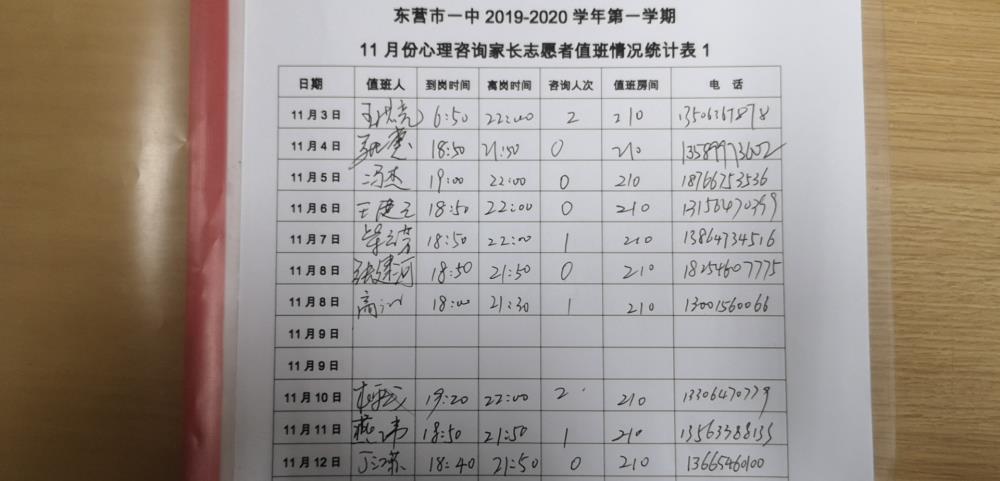 东营市一中 2019-2020 学年第一学期
11 月份心理咨询家长志愿者值班情况统计表 1
日期 值班人 到岗时间 离岗时间 咨询人次 值班房间 电 话
11月3日 6:50 22:00 2 210
11月4日 18:50 21:50 0 210 13589973602
11月5日 冯杰 19:00 22:00 0 210 18766753536
11月6日 18:50 22:00 0 210 13156470399
11月7日 18:50 22:00 1 210 13864734516
11月8日 张建河 18:50 21:50 0 210 18254607775
11月8日 高 18:00 21:30 1 210 13001560066
11月9日
11月9日
11月10日 19:20 22:00 2 210
11月11日 18:50 21:50 1 210
11月12日 丁江苏 18:40 21:50 0 210 13665460100